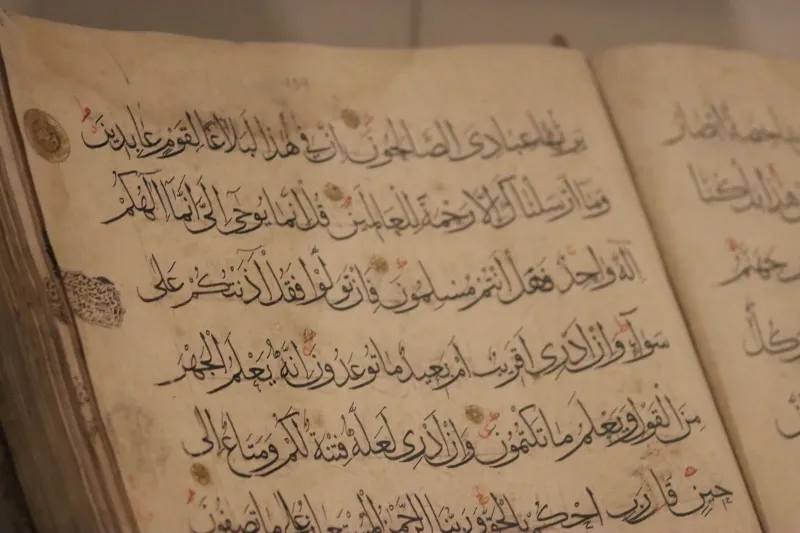 أَبْصَارُ
هٰذَا بَلْ كُنَّا
جَهَنَّمَ
وَكُلٌّ
يَرِثُهَا عِبَادِيَ الصَّالِحُونَ إِنَّ فِي هٰذَا لَبَلَاغًا لِقَوْمٍ عَابِدِينَ
وَمَا أَرْسَلْنَاكَ إِلَّا رَحْمَةً لِلْعَالَمِينَ قُلْ إِنَّمَا يُوحَى إِلَيَّ أَنَّمَا إِلٰهُكُمْ
إِلٰهٌ وَاحِدٌ فَهَلْ أَنْتُمْ مُسْلِمُونَ فَإِنْ تَوَلَّوْا فَقُلْ آذَنْتُكُمْ عَلَى
سَوَاءٍ وَإِنْ أَدْرِي أَقَرِيبٌ أَمْ بَعِيدٌ مَا تُوعَدُونَ إِنَّهُ يَعْلَمُ الْجَهْرَ
مِنَ الْقَوْلِ وَيَعْلَمُ مَا تَكْتُمُونَ وَإِنْ أَدْرِي لَعَلَّهُ فِتْنَةٌ لَكُمْ وَمَتَاعٌ إِلَى
حِينٍ قَالَ رَبِّ احْكُمْ بِالْحَقِّ وَرَبُّنَا الرَّحْمٰنُ الْمُسْتَعَانُ عَلَى مَا تَصِفُونَ